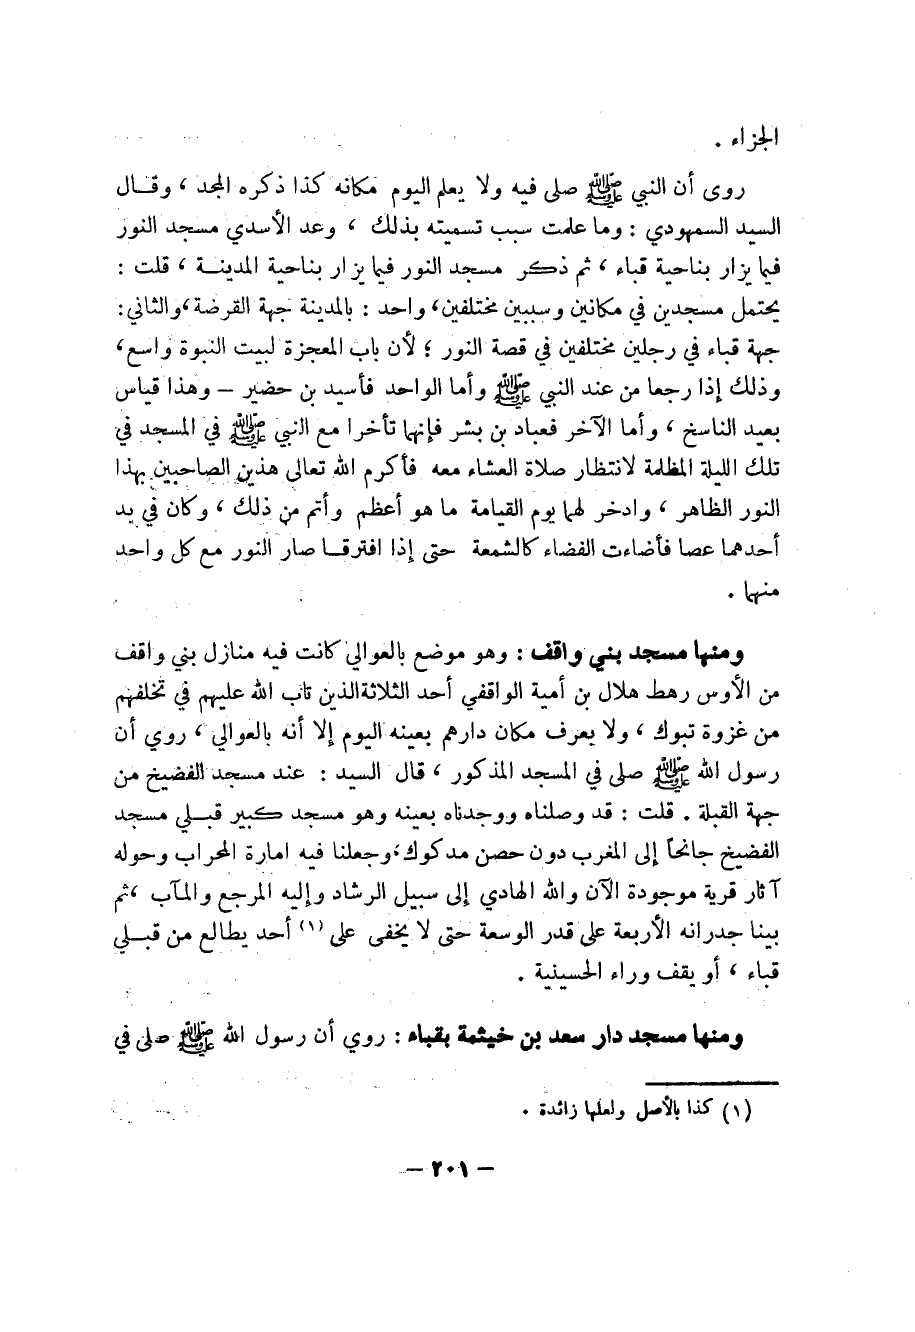 الجزاء .
روى أن النبي ﷺ صلى فيه ولا يعلم اليوم مكانه كذا ذكره المجد ، وقال
السيد السمهودي : وما علمت سبب تسميته بذلك ، وعد الأسدي مسجد النور
فيما يزار بناحية قباء ، ثم ذكر مسجد النور فيما يزار بناحية المدينة ، قلت :
يحتمل مسجدين في مكانين وسببين مختلفين، واحد : بالمدينة جهة القرضة،والثاني:
جهة قباء في رجلين مختلفين في قصة النور ؛ لأن باب المعجزة لبيت النبوة واسع،
وذلك إذا رجعا من عند النبي ﷺ وأما الواحد فأسيد بن حضير – وهذا قياس
بعيد الناسخ ، وأما الآخر فعباد بن بشر فإنهما تأخرا مع النبي ﷺ في المسجد في
تلك الليلة المظلمة لانتظار صلاة العشاء معه فأكرم الله تعالى هذين الصاحبين بهذا
النور الظاهر ، وادخر لهما يوم القيامة ما هو أعظم وأتم من ذلك ، وكان في يد
أحدهما عصا فأضاءت الفضاء كالشمعة حتى إذا افترقا صار النور مع كل واحد
منهما .
ومنها مسجد بني واقف : وهو موضع بالعوالي كانت فيه منازل بني واقف
من الأوس رهط هلال بن أمية الواقفي أحد الثلاثةالذين تاب الله عليهم في تخلفهم
من غزوة تبوك ، ولا يعرف مكان دارهم بعينه اليوم إلا أنه بالعوالي ، روي أن
رسول الله ﷺ صلى في المسجد المذكور ، قال السيد : عند مسجد الفضيخ من
جهة القبلة . قلت : قد وصلناه ووجدناه بعينه وهو مسجد كبير قبلي مسجد
الفضيخ جانحاً إلى المغرب دون حصن مدكوك،وجعلنا فيه امارة المحراب وحوله
آثار قرية موجودة الآن والله الهادي إلى سبيل الرشاد وإليه المرجع والمآب ،ثم
بينا جدرانه الأربعة على قدر الوسعة حتى لا يخفى على (١) أحد يطالع من قبلي
قباء ، أو يقف وراء الحسينية .
ومنها مسجد دار سعد بن خيثمة بقباء : روي أن رسول الله ﷺ صلى في
(١) كذا بالأصل ولعلها زائدة .
– ٢٠١ –